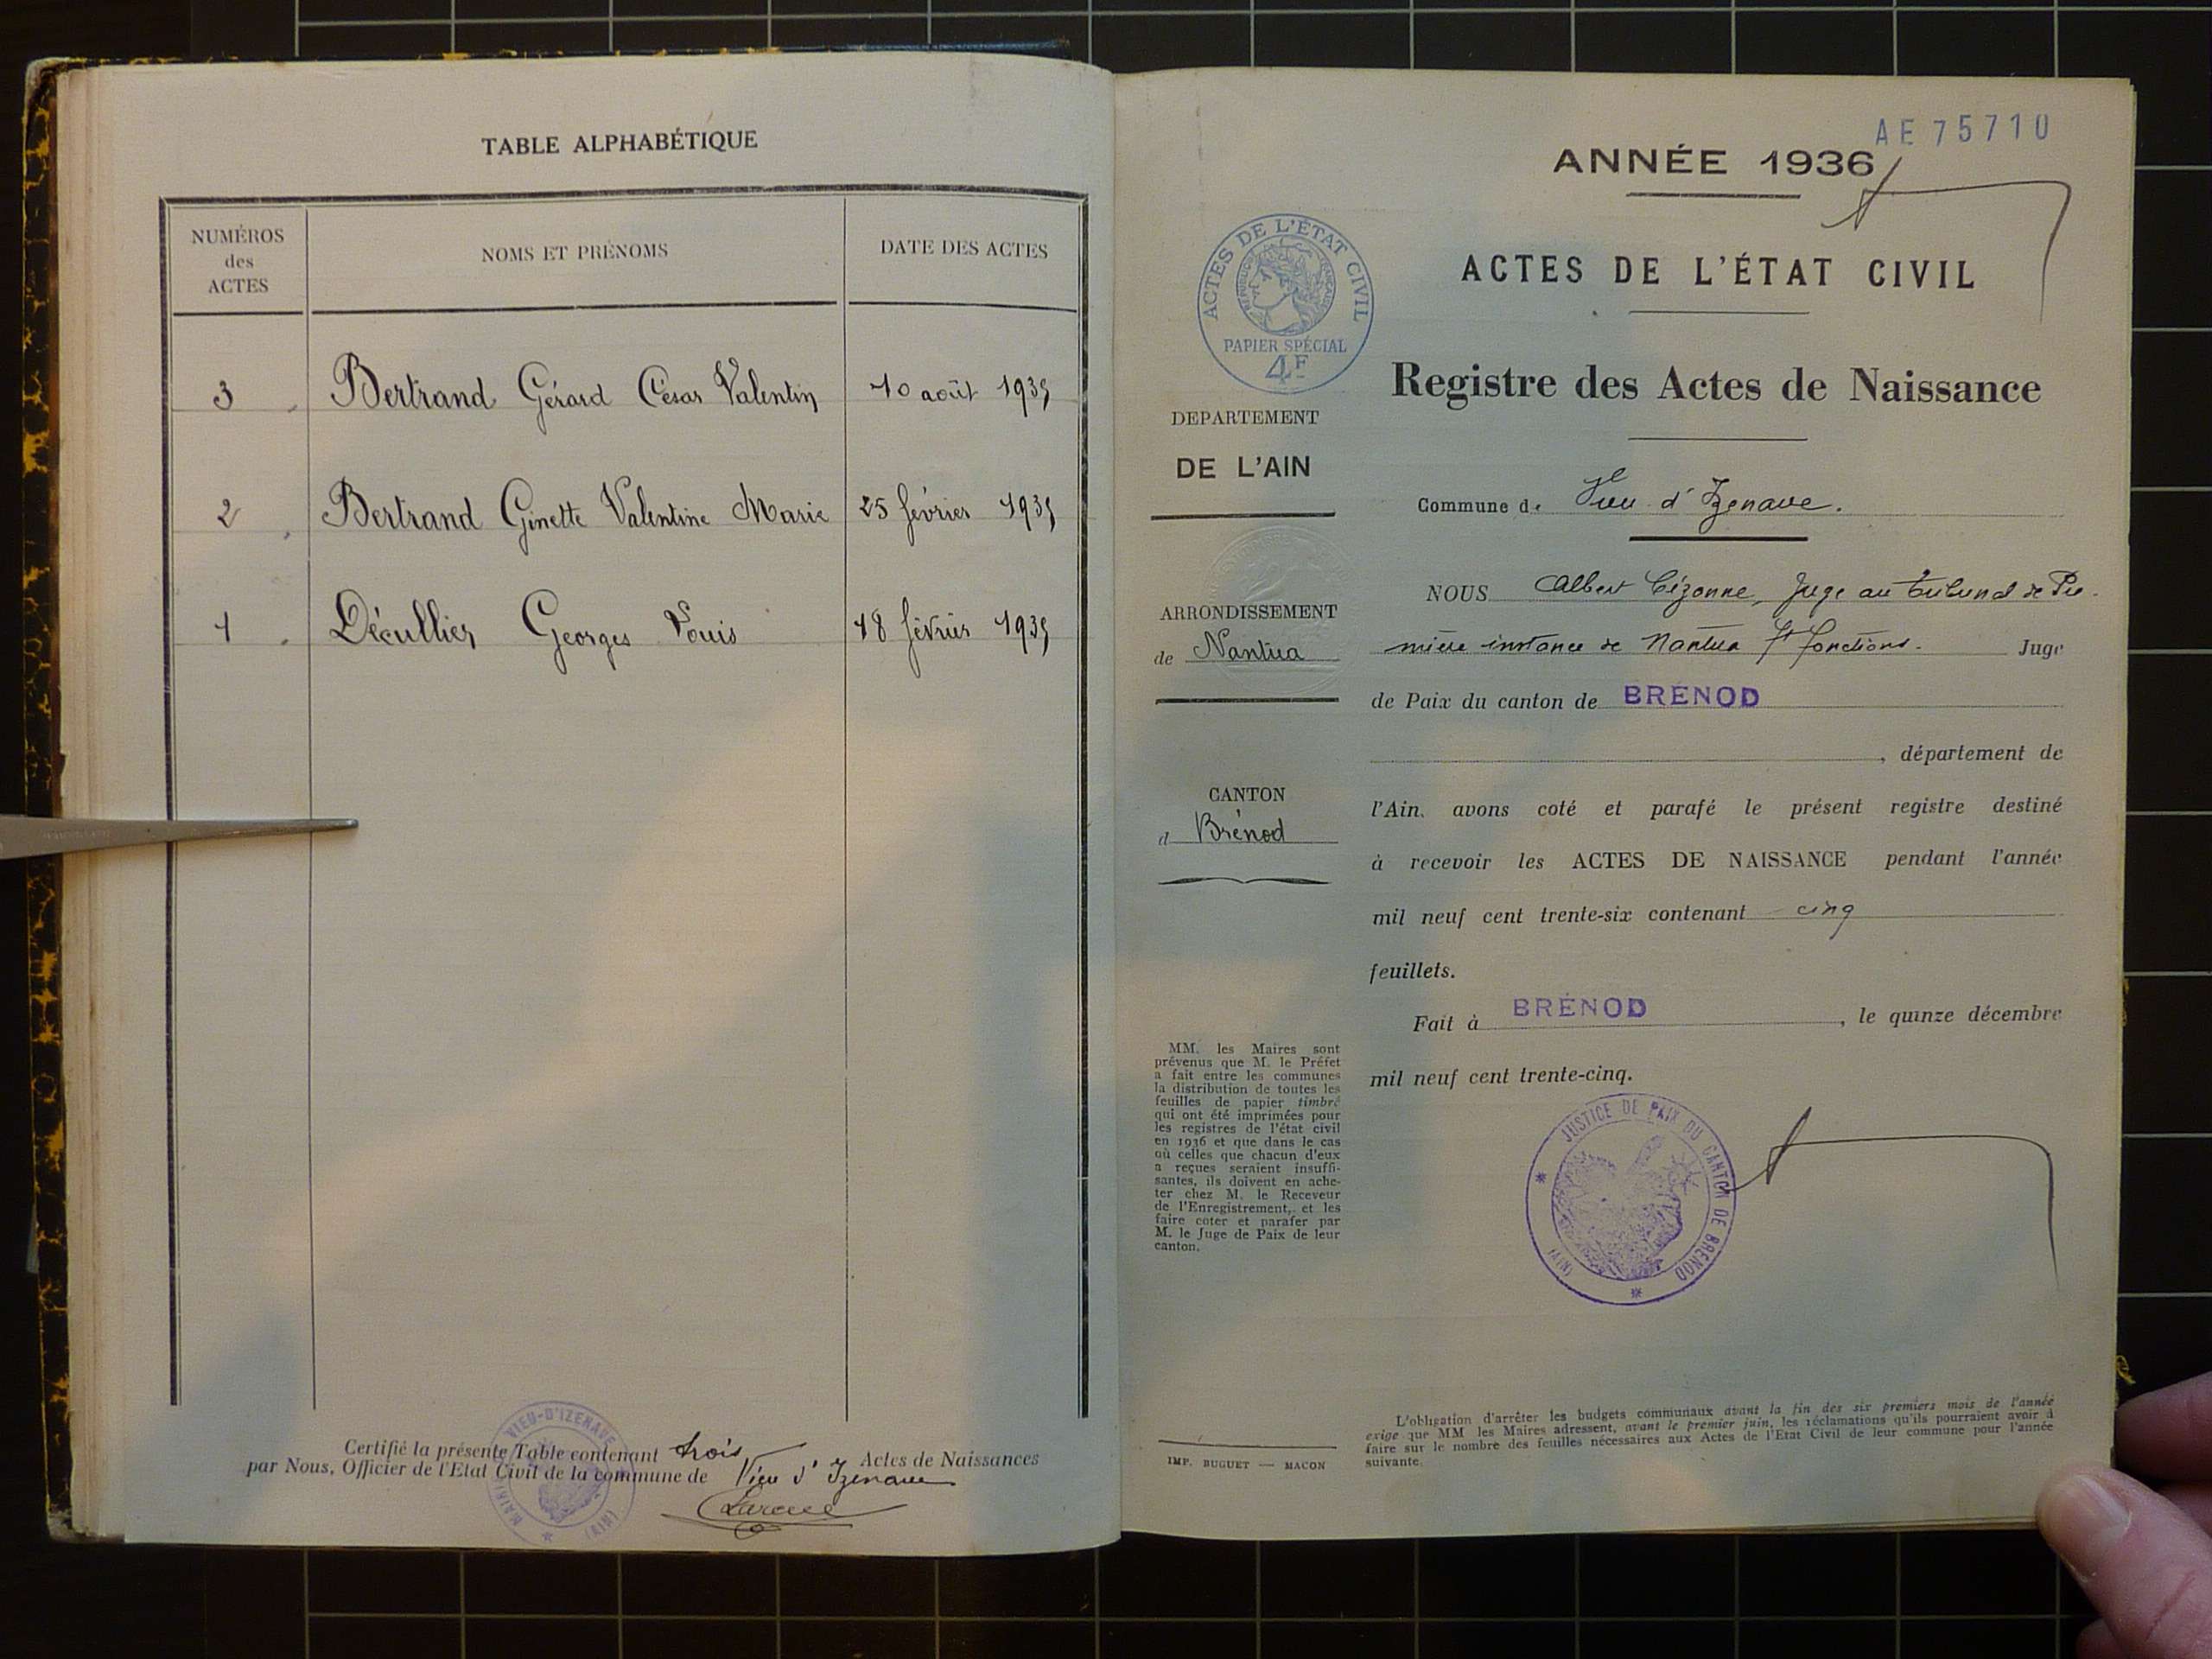 TABLE ALPHABÉTIQUE
NUMÉROS
des
ACTES
NOMS ET PRÉNOMS
DATE DES ACTES
3 Bertrand Gérard César Valentin 10 août 1935
2 Bertrand Ginette Valentine Marie 25 février 1935
1 Décullier Georges Louis 18 février 1935
Certifié la présente Table contenant trois Actes de Naissances
par Nous, Officier de l'Etat Civil de la commune de Vieu d'Izenave
MAIRIE VIEU-D'IZENAVE (AIN)
AE 75710
ANNÉE 1936
ACTES DE L'ÉTAT CIVIL
RÉPUBLIQUE FRANÇAISE
PAPIER SPÉCIAL
4F
ACTES DE L'ÉTAT CIVIL
Registre des Actes de Naissance
DEPARTEMENT
DE L'AIN
Commune de Vieu d'Izenave.
ARRONDISSEMENT
de Nantua
CANTON
d Brénod
NOUS Albert Cézonne, Juge au tribunal de Pre-
mière instance de Nantua ft fonctions. Juge
de Paix du canton de BRÉNOD
, département de
l'Ain, avons coté et parafé le présent registre destiné
à recevoir les ACTES DE NAISSANCE pendant l'année
mil neuf cent trente-six contenant cinq
feuillets.
Fait à BRÉNOD, le quinze décembre
mil neuf cent trente-cinq.
JUSTICE DE PAIX DU CANTON DE BRENOD (AIN)
MM. les Maires sont
prévenus que M. le Préfet
a fait entre les communes
la distribution de toutes les
feuilles de papier timbré
qui ont été imprimées pour
les registres de l'état civil
en 1936 et que dans le cas
où celles que chacun d'eux
a reçues seraient insuffi-
santes, ils doivent en ache-
ter chez M. le Receveur
de l'Enregistrement, et les
faire coter et parafer par
M. le Juge de Paix de leur
canton.
IMP. BUGUET — MACON
L'obligation d'arrêter les budgets communaux avant la fin des six premiers mois de l'année
exige que MM les Maires adressent, avant le premier juin, les réclamations qu'ils pourraient avoir à
faire sur le nombre des feuilles nécessaires aux Actes de l'Etat Civil de leur commune pour l'année
suivante.